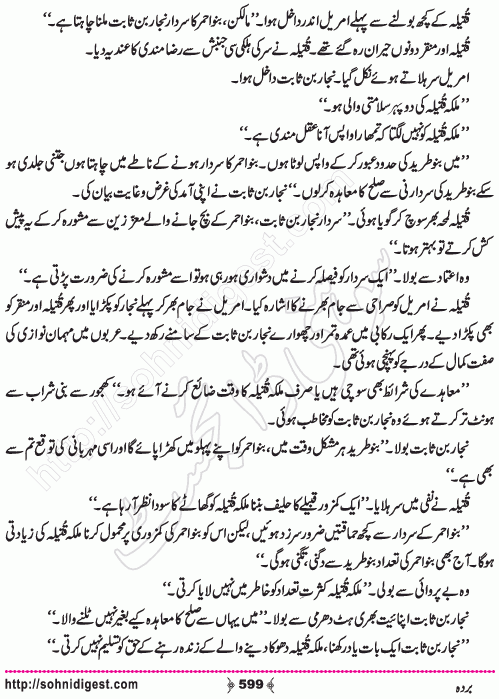 قُتیلہ کے کچھ بولنے سے پہلے امریل اندر داخل ہوا۔ ’’مالکن، بنو احمر کا سردار نجار بن ثابت ملنا چاہتا ہے۔‘‘
قُتیلہ اور منقر دونوں حیران رہ گئے تھے۔ قُتیلہ نے سر کی ہلکی سی جنبش سے رضا مندی کا عندیہ دیا۔
امریل سر ہلاتے ہوئے نکل گیا۔ نجار بن ثابت داخل ہوا۔
’’ملکہ قُتیلہ کی دو پہر سلامتی والی ہو۔‘‘
’’ملکہ قُتیلہ کو نہیں لگتا کہ تمھارا واپس آنا عقل مندی ہے۔‘‘
’’میں بنو طرید کی حدود عبور کر کے واپس لوٹا ہوں۔ بنو احمر کا سردار ہونے کے ناطے میں چاہتا ہوں جتنی جلدی ہو
سکے بنو طرید کی سردارنی سے صلح کا معاہدہ کر لوں۔‘‘ نجار بن ثابت نے اپنی آمد کی غرض و غایت بیان کی۔
قُتیلہ لمحہ بھر سوچ کر گویا ہوئی۔ ’’سردار نجار بن ثابت، بنو احمر کے بچ جانے والے معززین سے مشورہ کر کے یہ پیش
کش کرتے تو بہتر ہوتا۔‘‘
وہ اعتماد سے بولا۔ ’’ایک سردار کو فیصلہ کرنے میں دشواری ہو رہی ہو تو اسے مشورہ کرنے کی ضرورت پڑتی ہے۔‘‘
قُتیلہ نے امریل کو صراحی سے جام بھرنے کا اشارہ کیا۔ امریل نے جام بھر کر پہلے نجار کو پکڑایا اور پھر قُتیلہ اور منقر کو
بھی پکڑا دیے۔ پھر ایک رکابی میں عمدہ تمر اور چھوارے نجار بن ثابت کے سامنے رکھ دیے۔ عربوں میں مہمان نوازی کی
صفت کمال کے درجے کو پہنچی ہوئی تھی۔
’’معاہدے کی شرائط بھی سوچی ہیں یا صرف ملکہ قُتیلہ کا وقت ضائع کرنے آئے ہو۔‘‘ کھجور سے بنی شراب سے
ہونٹ تر کرتے ہوئے وہ نجار بن ثابت کو مخاطب ہوئی۔
نجار بن ثابت بولا۔ ’’بنو طرید ہر مشکل وقت میں، بنو احمر کو اپنے پہلو میں کھڑا پائے گا اور اسی مہربانی کی توقع تم سے
بھی ہے۔‘‘
قُتیلہ نے نفی میں سر ہلایا۔ ’’ایک کمزور قبیلے کا حلیف بننا ملکہ قُتیلہ کو گھاٹے کا سودا نظر آ رہا ہے۔‘‘
’’بنو احمر کے سردار سے کچھ حماقتیں ضرور سرزد ہوئیں، لیکن اس کو بنو احمر کی کمزوری پر محمول کرنا ملکہ قُتیلہ کی زیادتی
ہوگا۔ آج بھی بنو احمر کی تعداد بنو طرید سے دگنی، تگنی ہوگی۔‘‘
وہ بے پروائی سے بولی۔ ’’ملکہ قُتیلہ کثرتِ تعداد کو خاطر میں نہیں لایا کرتی۔‘‘
نجار بن ثابت اپنائیت بھری ہٹ دھرمی سے بولا۔ ’’میں یہاں سے صلح کا معاہدہ کیے بغیر نہیں ٹلنے والا۔‘‘
’’نجار بن ثابت ایک بات یاد رکھنا، ملکہ قُتیلہ دھوکا دینے والے کے زندہ رہنے کے حق کو تسلیم نہیں کرتی۔‘‘
بردہ
599
http://sohnidigest.com
http://sohnidigest.com